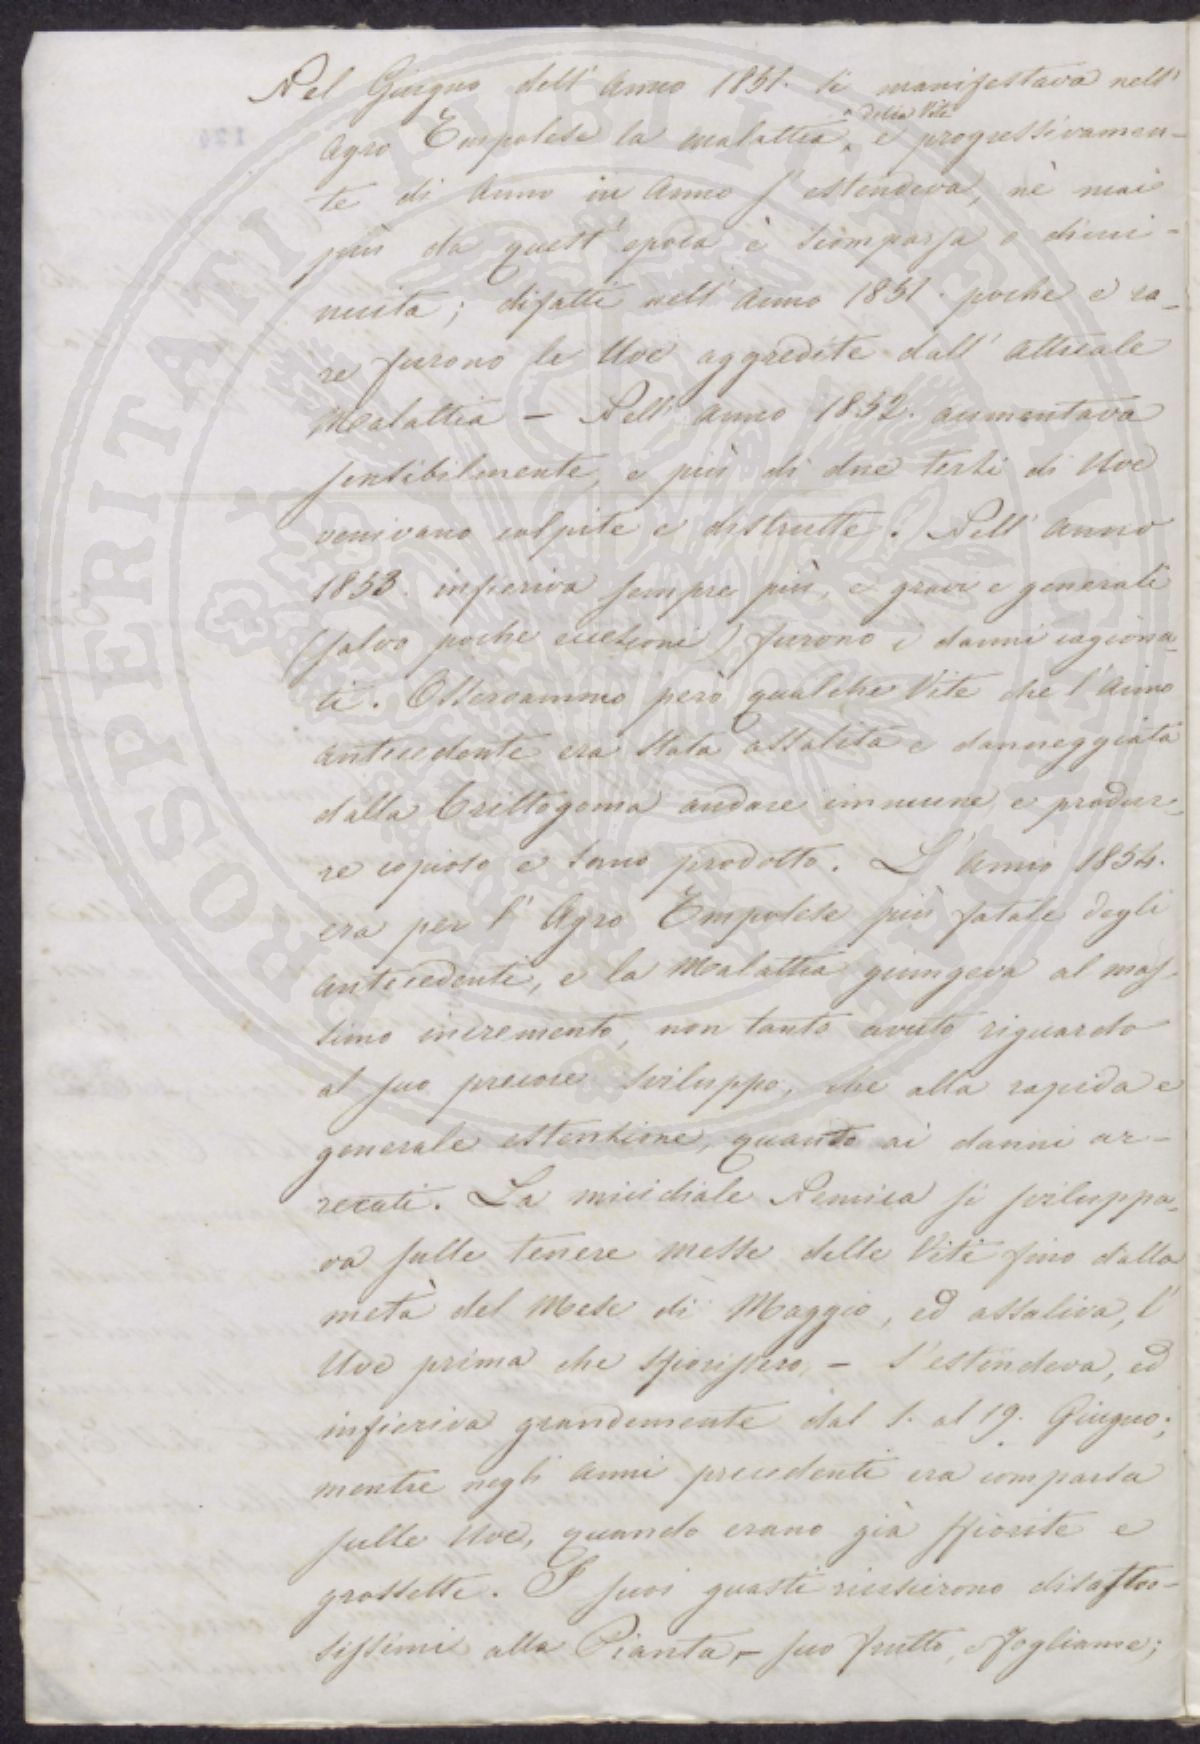 Nel Giugno dell' Anno 1851. si manifestava nell'
Agro Empolese la malattia ^ della Vite, e progressivamen-
te di Anno in Anno s' estendeva, nè mai
più da quest' epoca è scomparsa o dimi-
nuita; difatti nell' Anno 1851. poche e ra-
re furono le Uve aggredite dall' attuale
Malattia - Nell' Anno 1852. aumentava
sensibilmente, e più di due terzi di Uve
venivano colpite e distrutte. Nell' Anno
1853. infieriva sempre più, e gravi e generali
(salvo poche eccezioni) furono i danni cagiona-
ti. Osservammo però qualche Vite che l' Anno
antecedente era stata assalita e danneggiata
dalla Crittogama andare immune, e produr-
re copioso e sano prodotto. L' Anno 1854.
era per l' Agro Empolese più fatale degli
antecedenti, e la Malattia giungeva al mas-
simo incremento, non tanto avuto riguardo
al suo precoce sviluppo, che alla rapida e
generale estensione, quanto ai danni ar-
recati. La micidiale Nemica si sviluppa-
va sulle tenere messe delle Viti fino dalla
metà del Mese di Maggio, ed assaliva, l'
Uve prima che sfiorissero, - s' estendeva, ed
infieriva grandemente dal 1. al 19. Giugno;
mentre negli Anni precedenti era comparsa
sulle Uve, quando erano già sfiorite e
grossette. I suoi guasti riuscirono disastro-
sissimi alla Pianta, - suo frutto, e fogliame;
PROSPERITATI PUBLICAE AUGENDAE